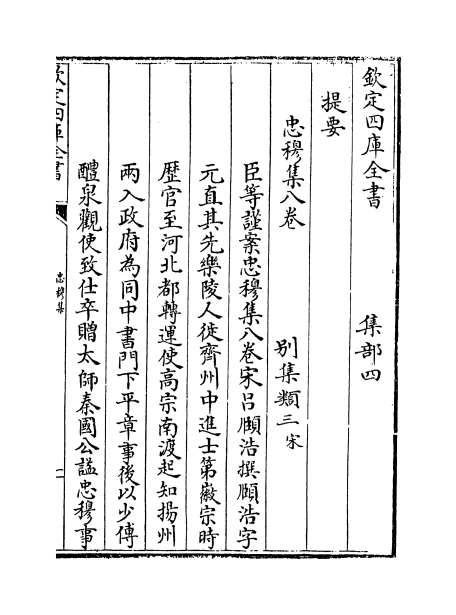 欽定四庫全書　集部四
提要
忠穆集八卷　别集類三宋
臣等謹案忠穆集八卷宋吕頤浩撰頤浩字
元直其先樂陵人徙齊州中進士第徽宗時
歴官至河北都轉運使高宗南渡起知揚州
兩入政府為同中書門下平章事後以少傅
醴泉觀使致仕卒贈太師秦國公諡忠穆事
欽定四庫全書
忠穆集
一